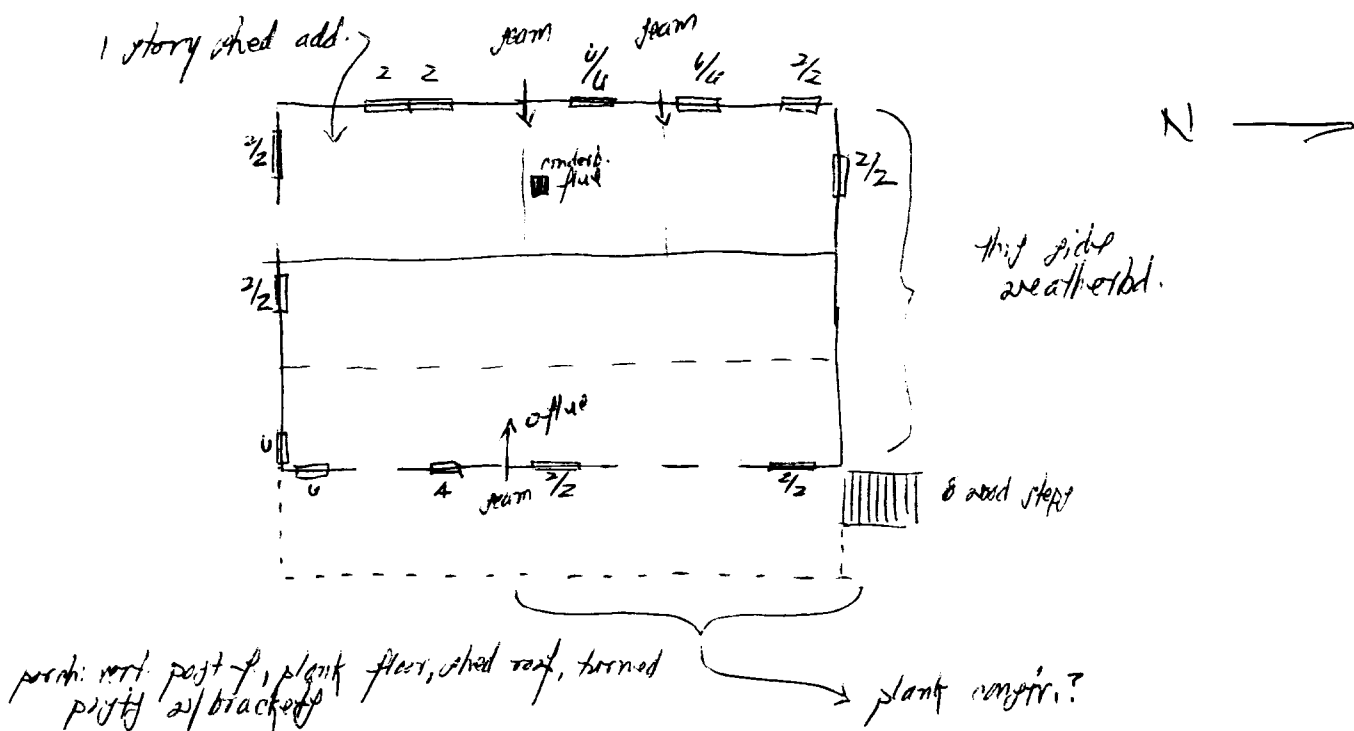 1 story shed add.
seam seam
2 2 6/6 6/6 2/2
N
2/2 2/2
cinderb.
flue
this side
weatherbd.
2/2
flue
6
6 4 seam 2/2 2/2
8 wood steps
porch: wd. post f., plank floor, shed roof, turned
posts w/brackets
plank constr.?